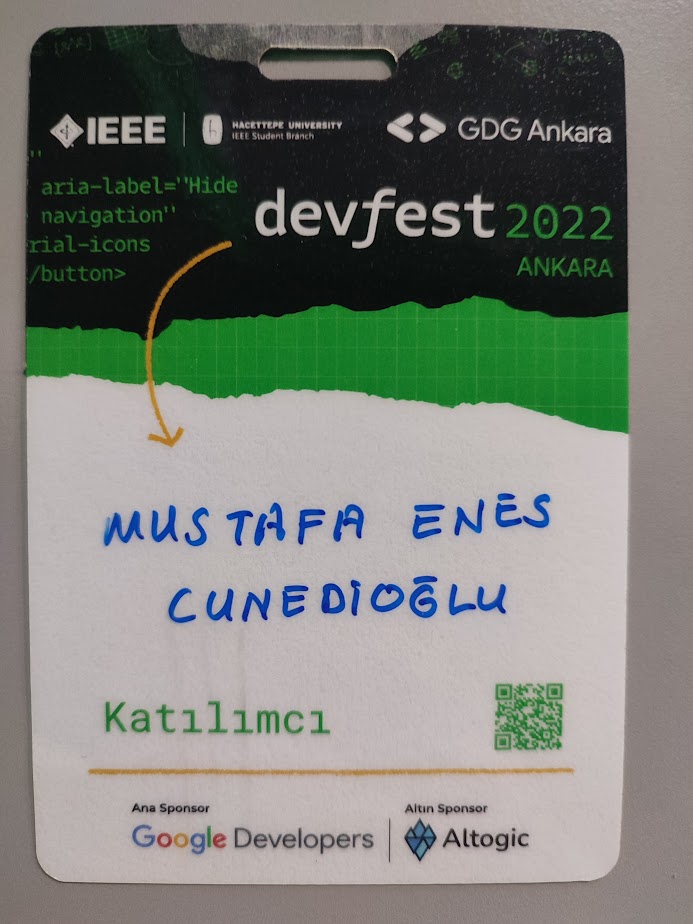 IEEE
HACETTEPE UNIVERSITY
IEEE Student Branch
GDG Ankara
"
aria-label="Hide
navigation"
rial-icons
/button>
devfest 2022
ANKARA
MUSTAFA ENES
CUNEDİOĞLU
Katılımcı
Ana Sponsor
Google Developers
Altın Sponsor
Altogic